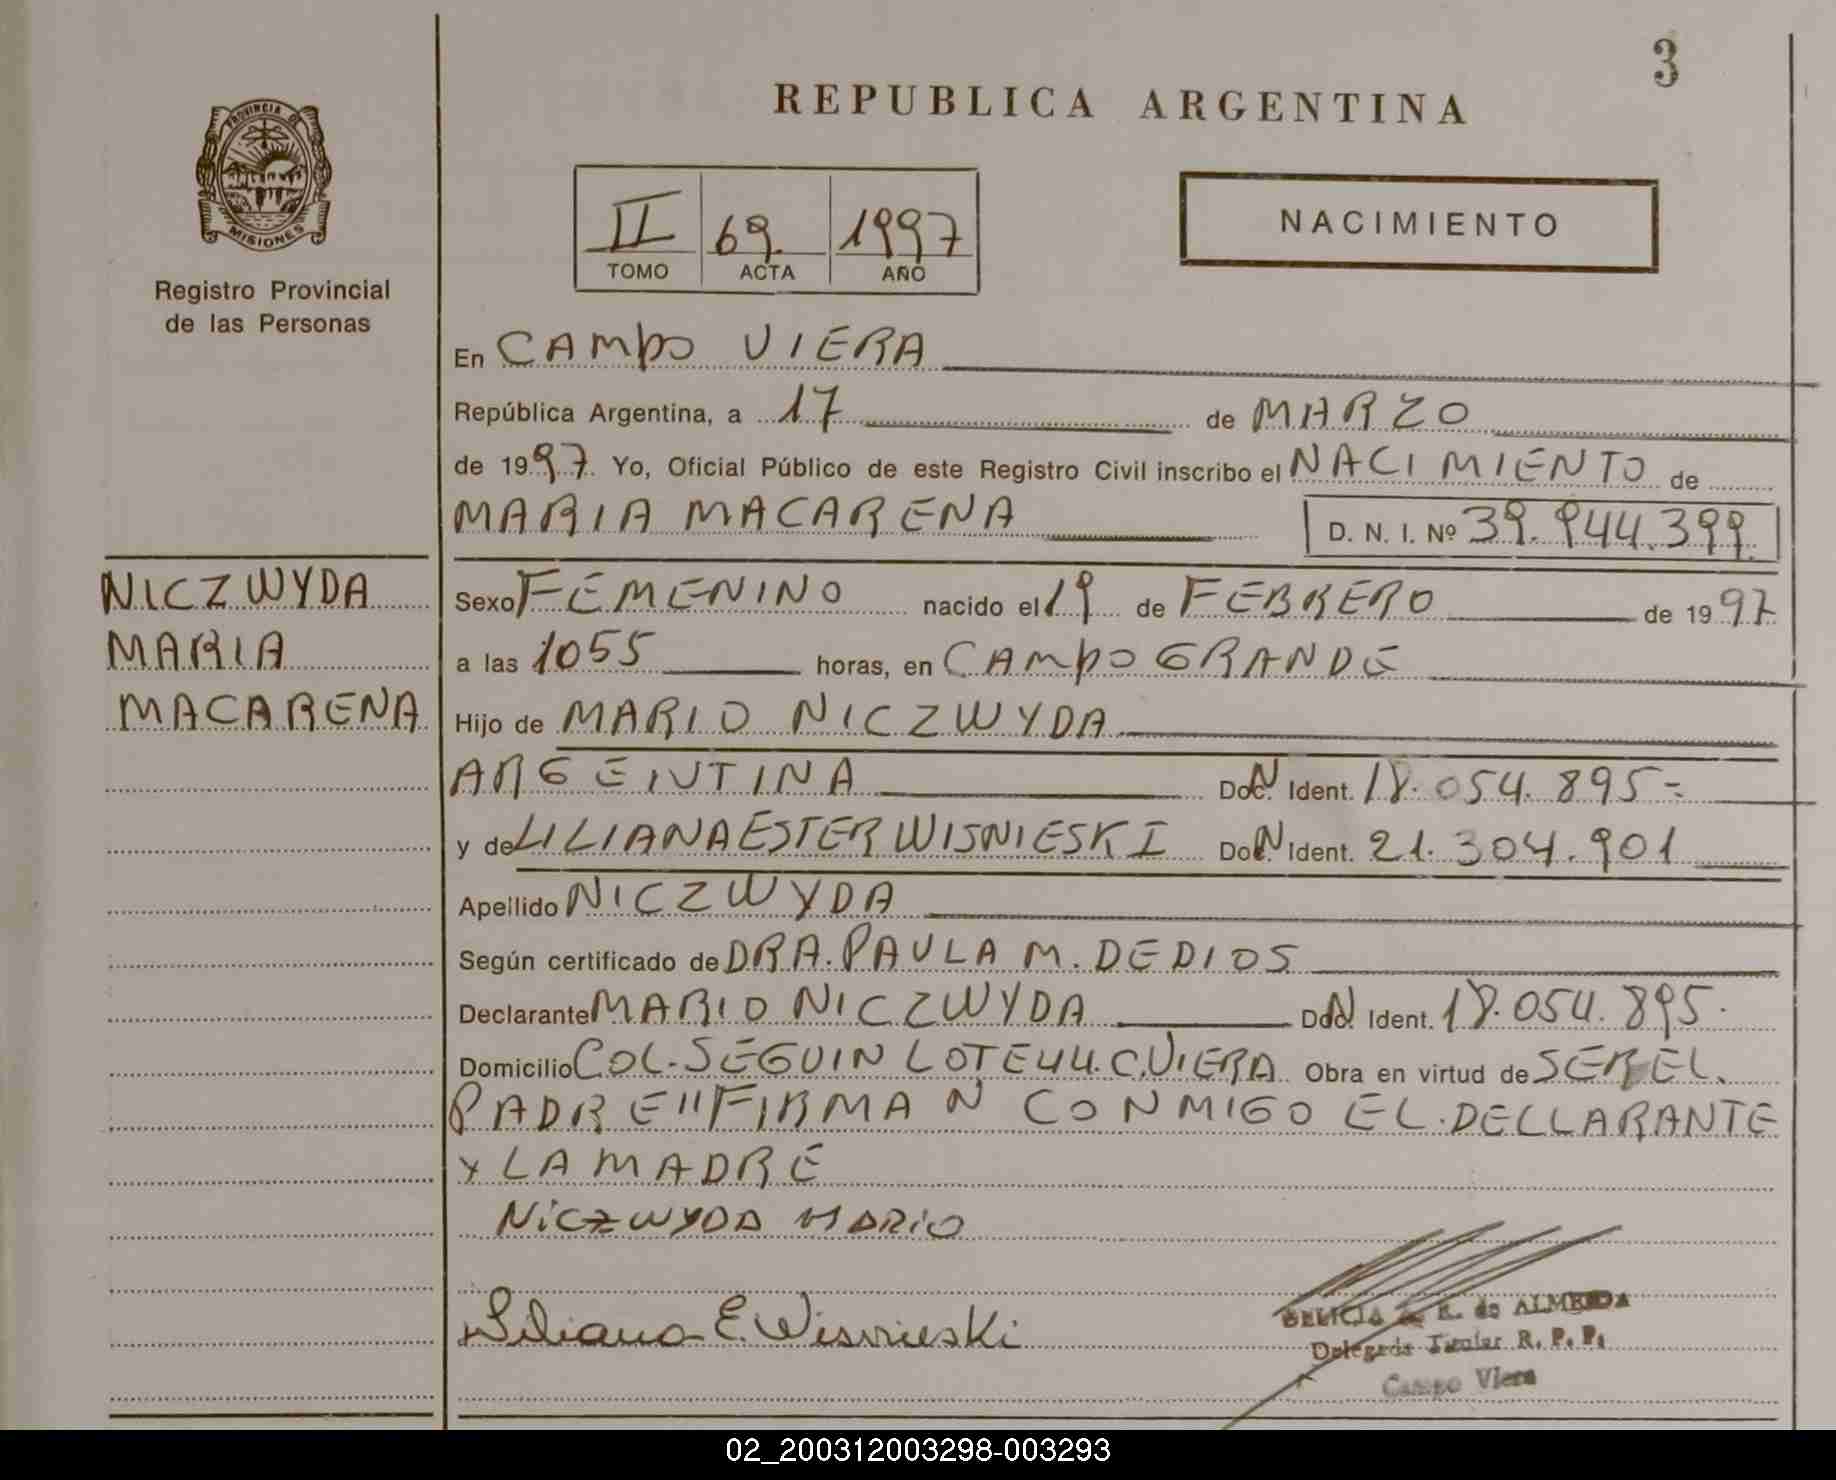 3
REPUBLICA ARGENTINA
PROVINCIA DE
MISIONES
Registro Provincial
de las Personas
II 69 1997
TOMO ACTA AÑO
NACIMIENTO
En CAMPO VIERA
República Argentina, a 17 de MARZO
de 1997. Yo, Oficial Público de este Registro Civil inscribo el NACIMIENTO de
MARIA MACARENA D. N. I. Nº 39.944.399
NICZWYDA
MARIA
MACARENA
Sexo FEMENINO nacido el 19 de FEBRERO de 1997
a las 1055 horas, en CAMPO GRANDE
Hijo de MARIO NICZWYDA
ARGENTINA Doc. N Ident. 18.054.895=
y de LILIANA ESTER WISNIESKI Doc. N Ident. 21.304.901
Apellido NICZWYDA
Según certificado de DRA. PAULA M. DEDIOS
Declarante MARIO NICZWYDA Doc. N Ident. 18.054.895.
Domicilio COL. SEGUIN LOTE 44. C. VIERA Obra en virtud de SER EL
PADRE" FIRMAN CONMIGO EL DECLARANTE
Y LA MADRE
NiCZWYDA MARiO
Liliana E. Wisnieski
de ALMEIDA
Delegada Titular R. P. P.
Campo Viera
02_200312003298-003293